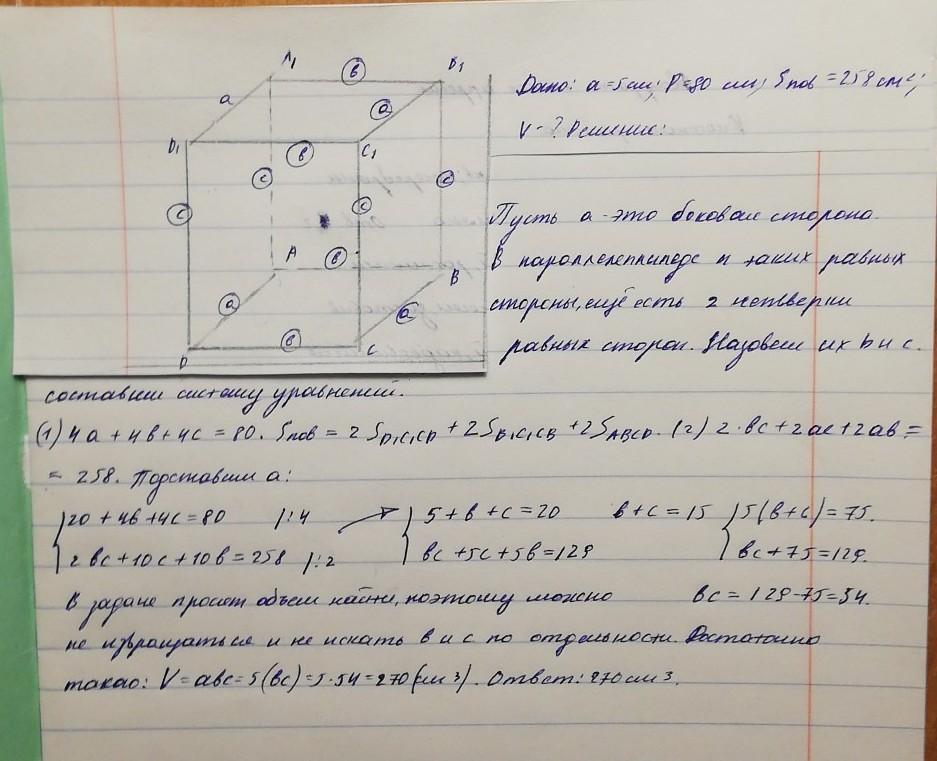 A₁ в B₁
а а
D₁ в C₁
с с с с
A в B
а а
D в C
Дано: а=5см; P=80 см; Sпов=258см²;
V-? Решение:
Пусть а-это боковая сторона.
В пароллелепипеде 4 таких равных
стороны, ещё есть 2 четверки
равных сторон. Назовем их b и c.
составим систему уравнений.
(1) 4а+4в+4с=80. Sпов=2S D₁C₁CD+2S B₁C₁CB+2S ABCD. (2) 2·вс+2ас+2ав=
=258. Подставим а:
{20+4в+4с=80 |:4 {5+в+с=20 в+с=15 {5(в+с)=75.
{2вс+10с+10в=258 |:2 {вс+5с+5в=129 {вс+75=129.
В задаче просят объем найти, поэтому можно вс=129-75=54.
не извращаться и не искать в и с по отдельности. Достаточно
такао: V=авс=5(вс)=5·54=270(см³). Ответ: 270см³.